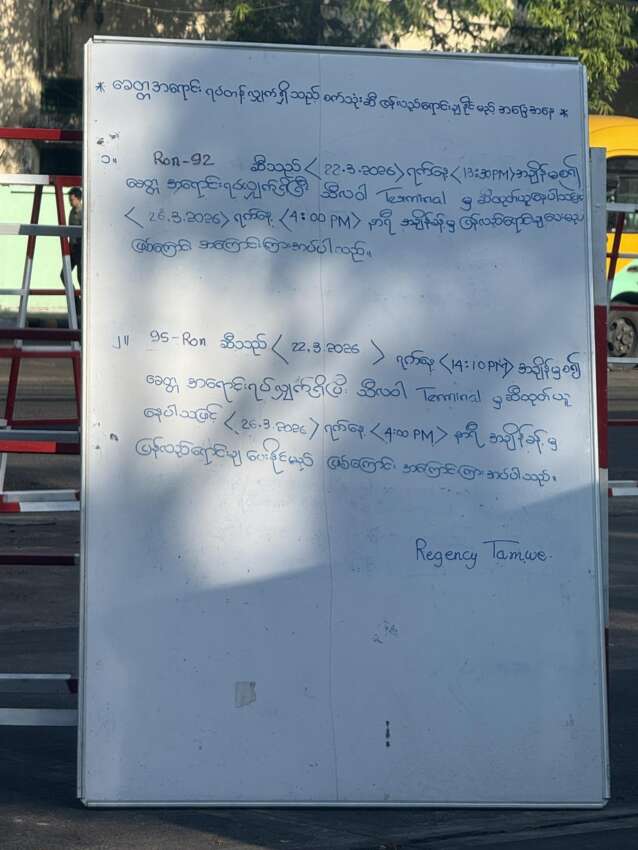 * ခေတ္တအရောင်းရပ်တန့်လျှက်ရှိသည့် စက်သုံးဆီ ပြန်လည်ရောင်းချနိုင်မည့် အခြေအနေ *
၁။ Ron-92 ဆီသည် <22.3.2026> ရက်နေ့ <13:30PM> အချိန်မှစ၍
ခေတ္တ အရောင်းရပ်လျှက်ရှိပြီး သီလဝါ Terminal မှ ဆီထုတ်ယူနေပါသဖြင့်
<26.3.2026> ရက်နေ့ <4:00 PM> နာရီ အချိန်ခန့်မှ ပြန်လည်ရောင်းချပေးမည်
ဖြစ်ကြောင်း အကြောင်းကြားအပ်ပါသည်။
၂။ 95-Ron ဆီသည် <22.3.2026> ရက်နေ့ <14:10PM> အချိန်မှစ၍
ခေတ္တ အရောင်းရပ်လျှက်ရှိပြီး သီလဝါ Terminal မှ ဆီထုတ်ယူ
နေပါသဖြင့် <26.3.2026> ရက်နေ့ <4:00 PM> နာရီ အချိန်ခန့်မှ
ပြန်လည်ရောင်းချ ပေးနိုင်မည် ဖြစ်ကြောင်း အကြောင်းကြားအပ်ပါသည်။
Regency Tamwe.